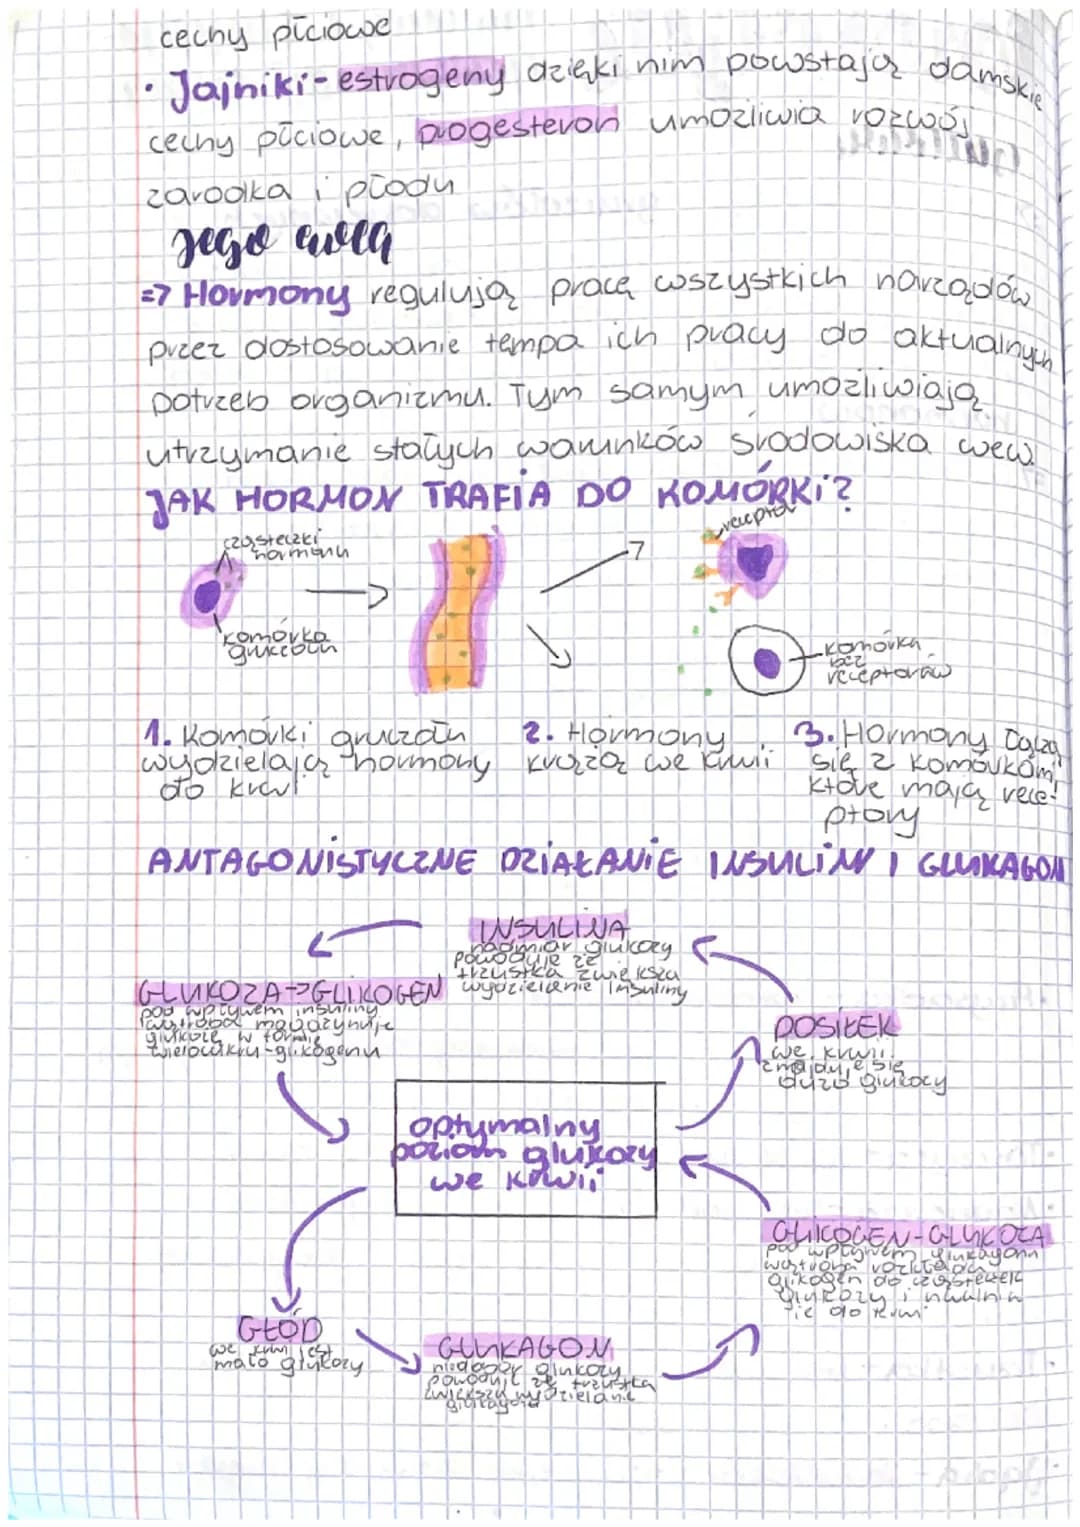 cechy płciowe
· Jajniki - estrogeny dzięki nim powstają damskie
cechy płciowe, progesteron umożliwia rozwój
zarodka i płodu
Jego
=> Hormony regulują pracę wszystkich narządów
przez dostosowanie tempa ich pracy do aktualnych
potrzeb organizmu. Tym samym umożliwiają
utrzymanie stałych warunków środowiska wew.
JAK HORMON TRAFIA DO KOMÓRKI?
receptor
cząsteczki
hormonu
komórka
gruczołu
komórka
bez
receptorów
1. Komórki gruczołu
wydzielają hormony
do krwi
2. Hormony
krążą we krwii
3. Hormony łączą
się z komórkami,
które mają rece-
ptory
ANTAGONISTYCZNE DZIAŁANIE INSULINY I GLUKAGON
INSULINA
nadmiar glukozy
powoduje że
trzustka zwiększa
wydzielanie insuliny
GLUKOZA->GLIKOGEN
pod wpływem insuliny
wątroba magazynuje
glukozę w formie
wielocukru-glikogenu
POSIŁEK
we krwii
znajduje się
dużo glukozy
optymalny
poziom glukozy
we krwii
GLIKOGEN-GLUKOZA
pod wpływem glukagonu
wątroba rozkłada
glikogen do cząsteczek
glukozy i uwalnia
je do krwi
GŁÓD
we krwi jest
mało glukozy
GLUKAGON
niedobór glukozy
powoduje że trzustka
zwiększa wydzielanie
glukagonu